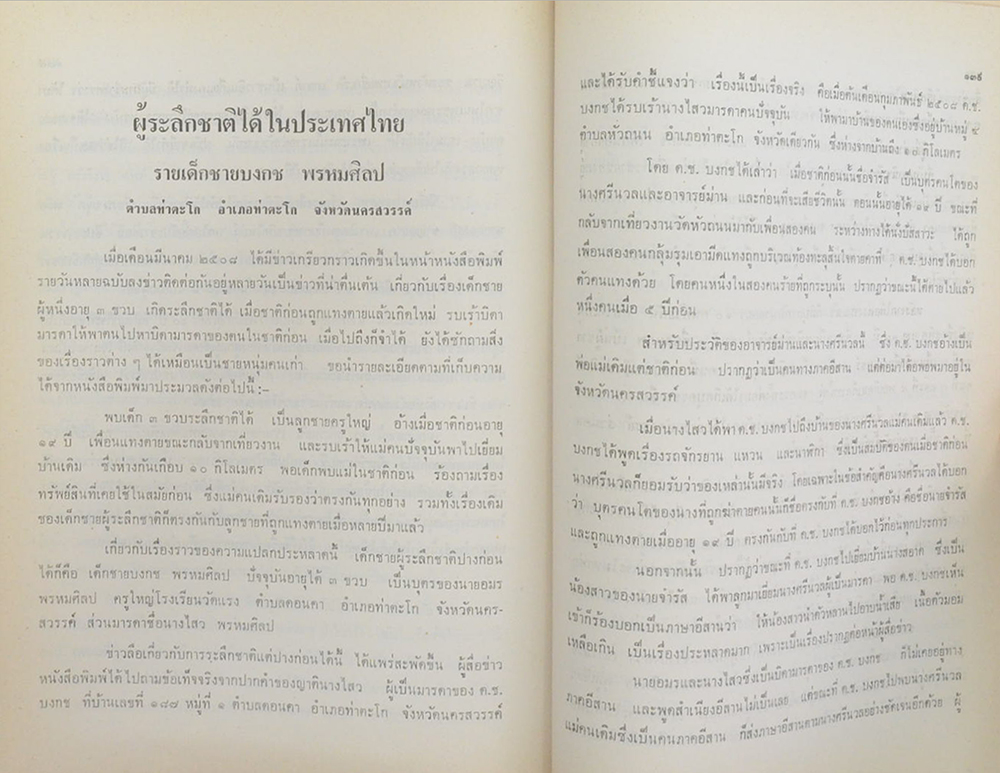 ผู้ระลึกชาติได้ในประเทศไทย
รายเด็กชายบงกช พรหมศิลป
ตำบลท่าตะโก อำเภอท่าตะโก จังหวัดนครสวรรค์
เมื่อเดือนมีนาคม ๒๕๐๘ ได้มีข่าวเกรียวกราวเกิดขึ้นในหน้าหนังสือพิมพ์
รายวันหลายฉบับลงข่าวติดต่อกันอยู่หลายวันเป็นข่าวที่น่าตื่นเต้น เกี่ยวกับเรื่องเด็กชาย
ผู้หนึ่งอายุ ๓ ขวบ เกิดระลึกชาติได้ เมื่อชาติก่อนถูกแทงตายแล้วเกิดใหม่ รบเร้าบิดา
มารดาให้พาตนไปหาบิดามารดาของตนในชาติก่อน เมื่อไปถึงก็จำได้ ยังได้ซักถามถึง
ของเรื่องราวต่าง ๆ ได้เหมือนเป็นชายหนุ่มคนเก่า ขอนำรายละเอียดตามที่เก็บความ
ได้จากหนังสือพิมพ์มาประมวลดังต่อไปนี้ :–
พบเด็ก ๓ ขวบระลึกชาติได้ เป็นลูกชายครูใหญ่ อ้างเมื่อชาติก่อนอายุ
๑๙ ปี เพื่อนแทงตายขณะกลับจากเที่ยวงาน และรบเร้าให้แม่คนปัจจุบันพาไปเยี่ยม
บ้านเดิม ซึ่งห่างกันเกือบ ๑๐ กิโลเมตร พอเด็กพบแม่ในชาติก่อน ร้องถามเรื่อง
ทรัพย์สินที่เคยใช้ในสมัยก่อน ซึ่งแม่คนเดิมรับรองว่าตรงกันทุกอย่าง รวมทั้งเรื่องเดิม
ของเด็กชายผู้ระลึกชาติก็ตรงกันกับลูกชายที่ถูกแทงตายเมื่อหลายปีมาแล้ว
เกี่ยวกับเรื่องราวของความแปลกประหลาดนี้ เด็กชายผู้ระลึกชาติปางก่อน
ได้ก็คือ เด็กชายบงกช พรหมศิลป ปัจจุบันอายุได้ ๓ ขวบ เป็นบุตรของนายอมร
พรหมศิลป ครูใหญ่โรงเรียนวัดแรง ตำบลดอนคา อำเภอท่าตะโก จังหวัดนคร-
สวรรค์ ส่วนมารดาชื่อนางไสว พรหมศิลป
ข่าวลือเกี่ยวกับการระลึกชาติแต่ปางก่อนได้นี้ ได้แพร่สะพัดขึ้น ผู้สื่อข่าว
หนังสือพิมพ์ได้ไปถามข้อเท็จจริงจากปากคำของญาตินางไสว ผู้เป็นมารดาของ ด.ช.
บงกช ที่บ้านเลขที่ ๑๘๗ หมู่ที่ ๑ ตำบลดอนคา อำเภอท่าตะโก จังหวัดนครสวรรค์
๑๓๕
และได้รับคำชี้แจงว่า เรื่องนี้เป็นเรื่องจริง คือเมื่อต้นเดือนกุมภาพันธ์ ๒๕๐๘ ด.ช.
บงกชได้รบเร้านางไสวมารดาคนปัจจุบัน ให้พามาบ้านของตนเองซึ่งอยู่บ้านหมู่ ๕
ตำบลหัวถนน อำเภอท่าตะโก จังหวัดเดียวกัน ซึ่งห่างจากบ้านถึง กิโลเมตร
โดย ด.ช. บงกชได้เล่าว่า เมื่อชาติก่อนนั้นชื่อจำรัส เป็นบุตรคนโตของ
นางศรีนวลและอาจารย์ม่าน และก่อนที่จะเสียชีวิตนั้น ตอนนั้นอายุได้ ๑๙ ปี ขณะที่
กลับจากเที่ยวงานวัดหัวถนนมากับเพื่อนสองคน ระหว่างทางได้นั่งปัสสาวะ ได้ถูก
เพื่อนสองคนกลุ้มรุมเอามีดแทงถูกบริเวณท้องทะลุสิ้นใจตายคาที่ ด.ช. บงกชได้บอก
ตัวคนแทงด้วย โดยคนหนึ่งในสองคนร้ายที่ถูกระบุนั้น ปรากฏว่าขณะนี้ได้ตายไปแล้ว
หนึ่งคนเมื่อ ๕ ปีก่อน
สำหรับประวัติของอาจารย์ม่านและนางศรีนวลนี้ ซึ่ง ด.ช. บงกชอ้างเป็น
พ่อแม่เดิมแต่ชาติก่อน ปรากฏว่าเป็นคนทางภาคอีสาน แต่ต่อมาได้อพยพมาอยู่ใน
จังหวัดนครสวรรค์
เมื่อนางไสวได้พา ด.ช. บงกชไปถึงบ้านของนางศรีนวลแม่คนเดิมแล้ว ด.ช.
บงกชได้พูดเรื่องรถจักรยาน แหวน และนาฬิกา ซึ่งเป็นสมบัติของตนเมื่อชาติก่อน
นางศรีนวลก็ยอมรับว่าของเหล่านั้นมีจริง โดยเฉพาะในข้อสำคัญคือนางศรีนวลได้บอก
ว่า บุตรคนโตของนางที่ถูกฆ่าตายคนนั้นก็ชื่อตรงกับที่ ด.ช. บงกชอ้าง คือชื่อนายจำรัส
และถูกแทงตายเมื่ออายุ ๑๙ ปี ตรงกันกับที่ ด.ช. บงกชได้บอกไว้ก่อนทุกประการ
นอกจากนั้น ปรากฏว่าขณะที่ ด.ช. บงกชไปเยี่ยมบ้านนางสอาด ซึ่งเป็น
น้องสาวของนายจำรัส ได้พาลูกมาเยี่ยมนางศรีนวลผู้เป็นมารดา พอ ด.ช. บงกชเห็น
เข้าก็ร้องบอกเป็นภาษาอีสานว่า ให้น้องสาวนำตัวหลานไปอาบน้ำเสีย เนื้อตัวมอม
เหลือเกิน เป็นเรื่องประหลาดมาก เพราะเป็นเรื่องปรากฏต่อหน้าผู้สื่อข่าว
นายอมรและนางไสวซึ่งเป็นบิดามารดาของ ด.ช. บงกช ก็ไม่เคยอยู่ทาง
ภาคอีสาน และพูดสำเนียงอีสานไม่เป็นเลย แต่ขณะที่ ด.ช. บงกชไปพบนางศรีนวล
แม่คนเดิมซึ่งเป็นคนภาคอีสาน ก็ส่งภาษาอีสานตามนางศรีนวลอย่างชัดเจนอีกด้วย ผู้